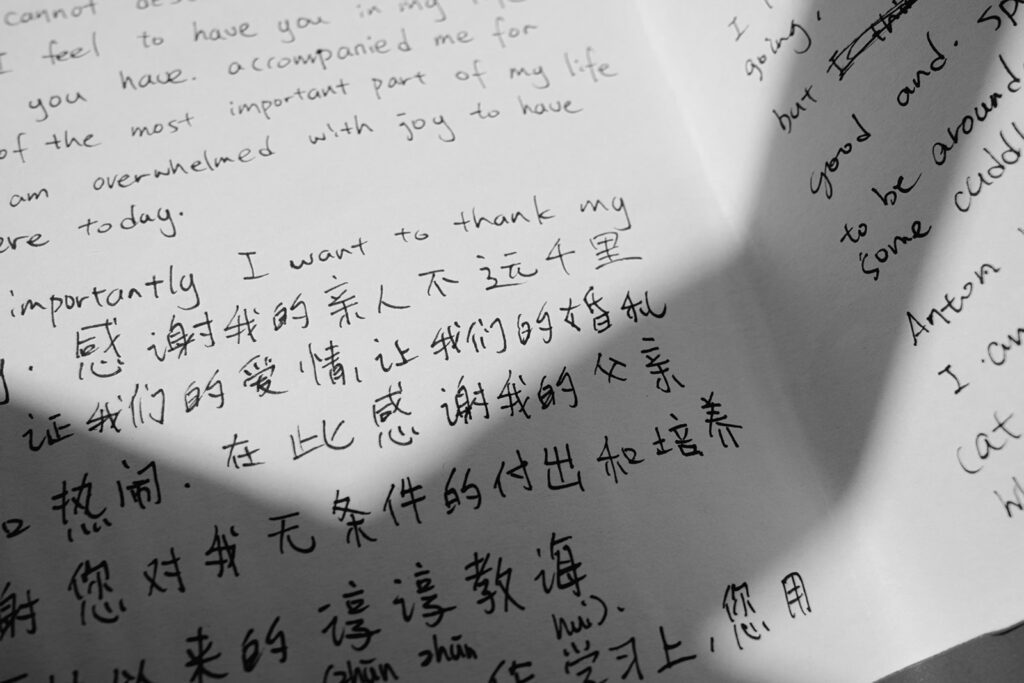 cannot
I feel to have you in my life
you have. accompanied me for
of the most important part of my life
am overwhelmed with joy to have
ere today.
importantly I want to thank my
感谢我的亲人不远千里
证我们的爱情,让我们的婚礼
热闹. 在此感谢我的父亲
谢您对我无条件的付出和培养
来的谆谆教诲
(zhūn zhūn hui).
学习上,您用
I
going,
but I think
good and. sp
to be around
some cuddl
Anton
I am
cat